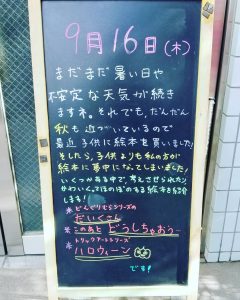 9月16日(木)
まだまだ暑い日や
不安定な天気が続き
ますネ。それでも、だんだん
秋も近づいているので
最近子供に絵本を買いました!
そしたら、子供よりも私の方が
絵本に夢中になってしまいました!
いくつかある中で、考えさせられたり
かわいく、ほのぼのする絵本を紹介
します!
※どんぐりむらシリーズの
だいくさん
※このあと どうしちゃおう
※トリックアートシリーズ
ハロウィーン
です!